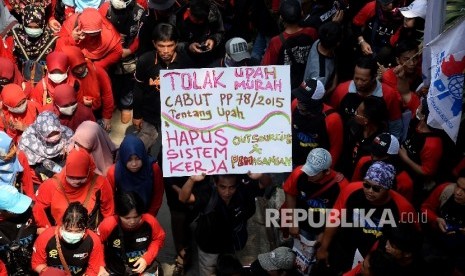 TOLAK UPAH MURAH
CABUT PP 78/2015
Tentang Upah
HAPUS OUTSOURCING
SISTEM &
KERJA PEMAGANGAN
REPUBLIKA